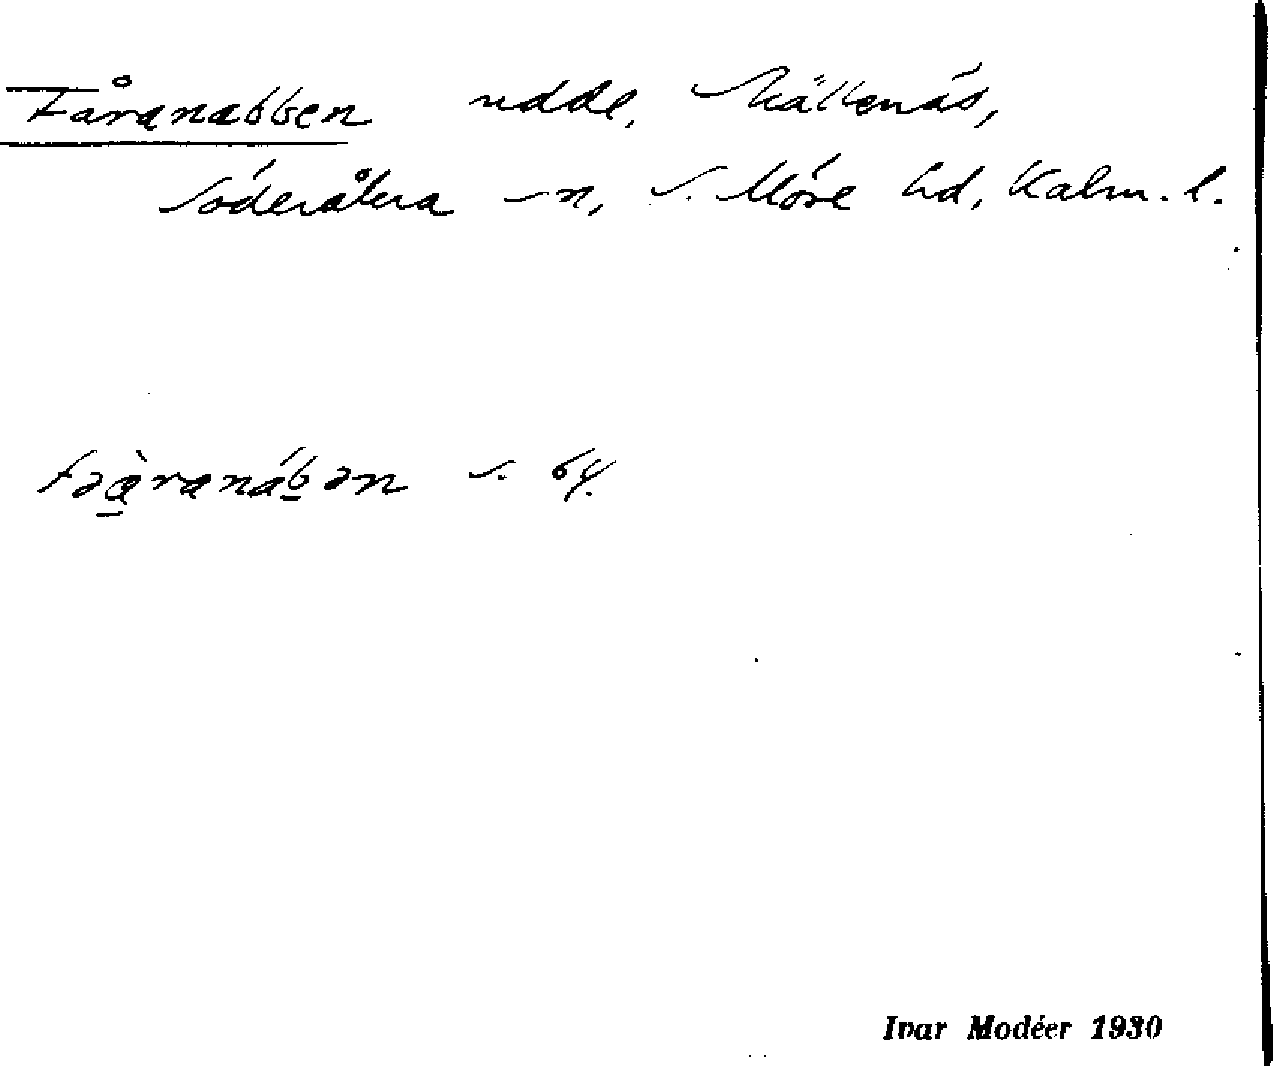 Fåranabben udde, Skällenäs,
Söderåkra sn, S. Möre hd, Kalm. l.
s. 64.
Ivar Modéer 1930